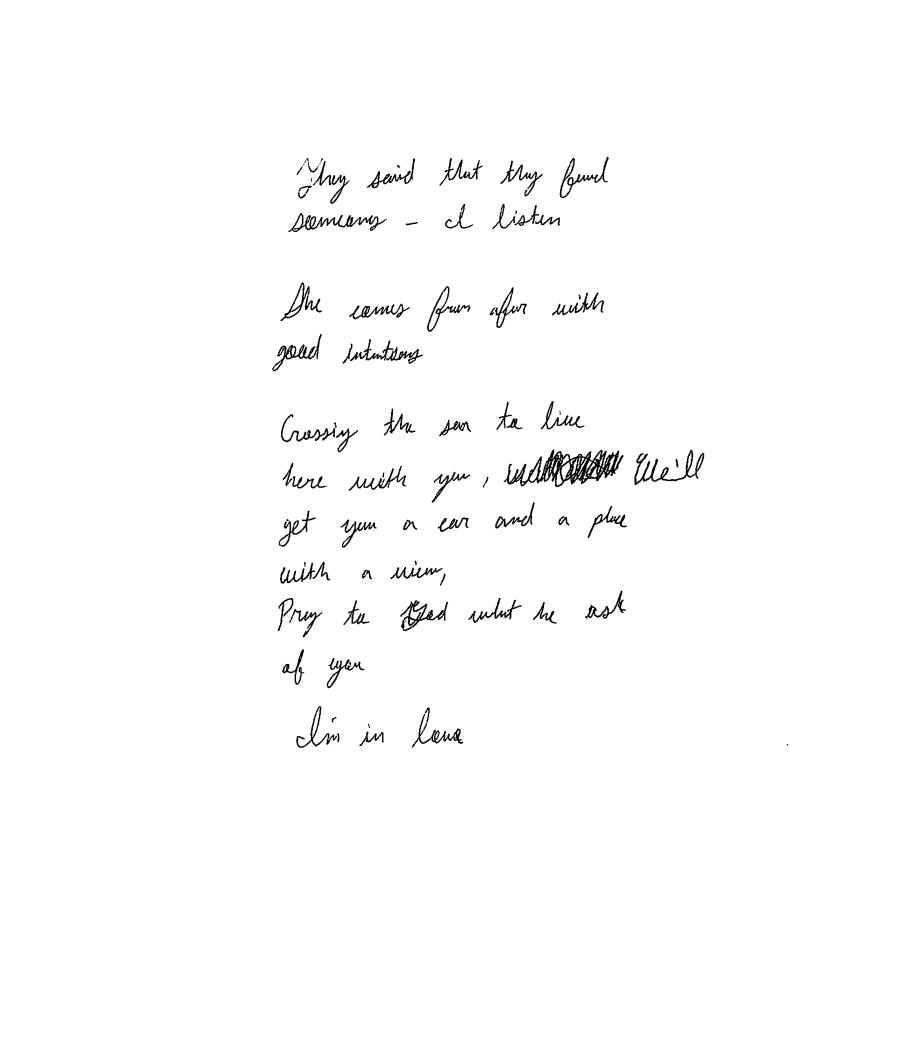 They said that they found
someone – I listen
She comes from afar with
good intentions
Crossing the sea to live
here with you, We'll
get you a car and a place
with a view,
Pray to God what he ask
of you
I'm in love